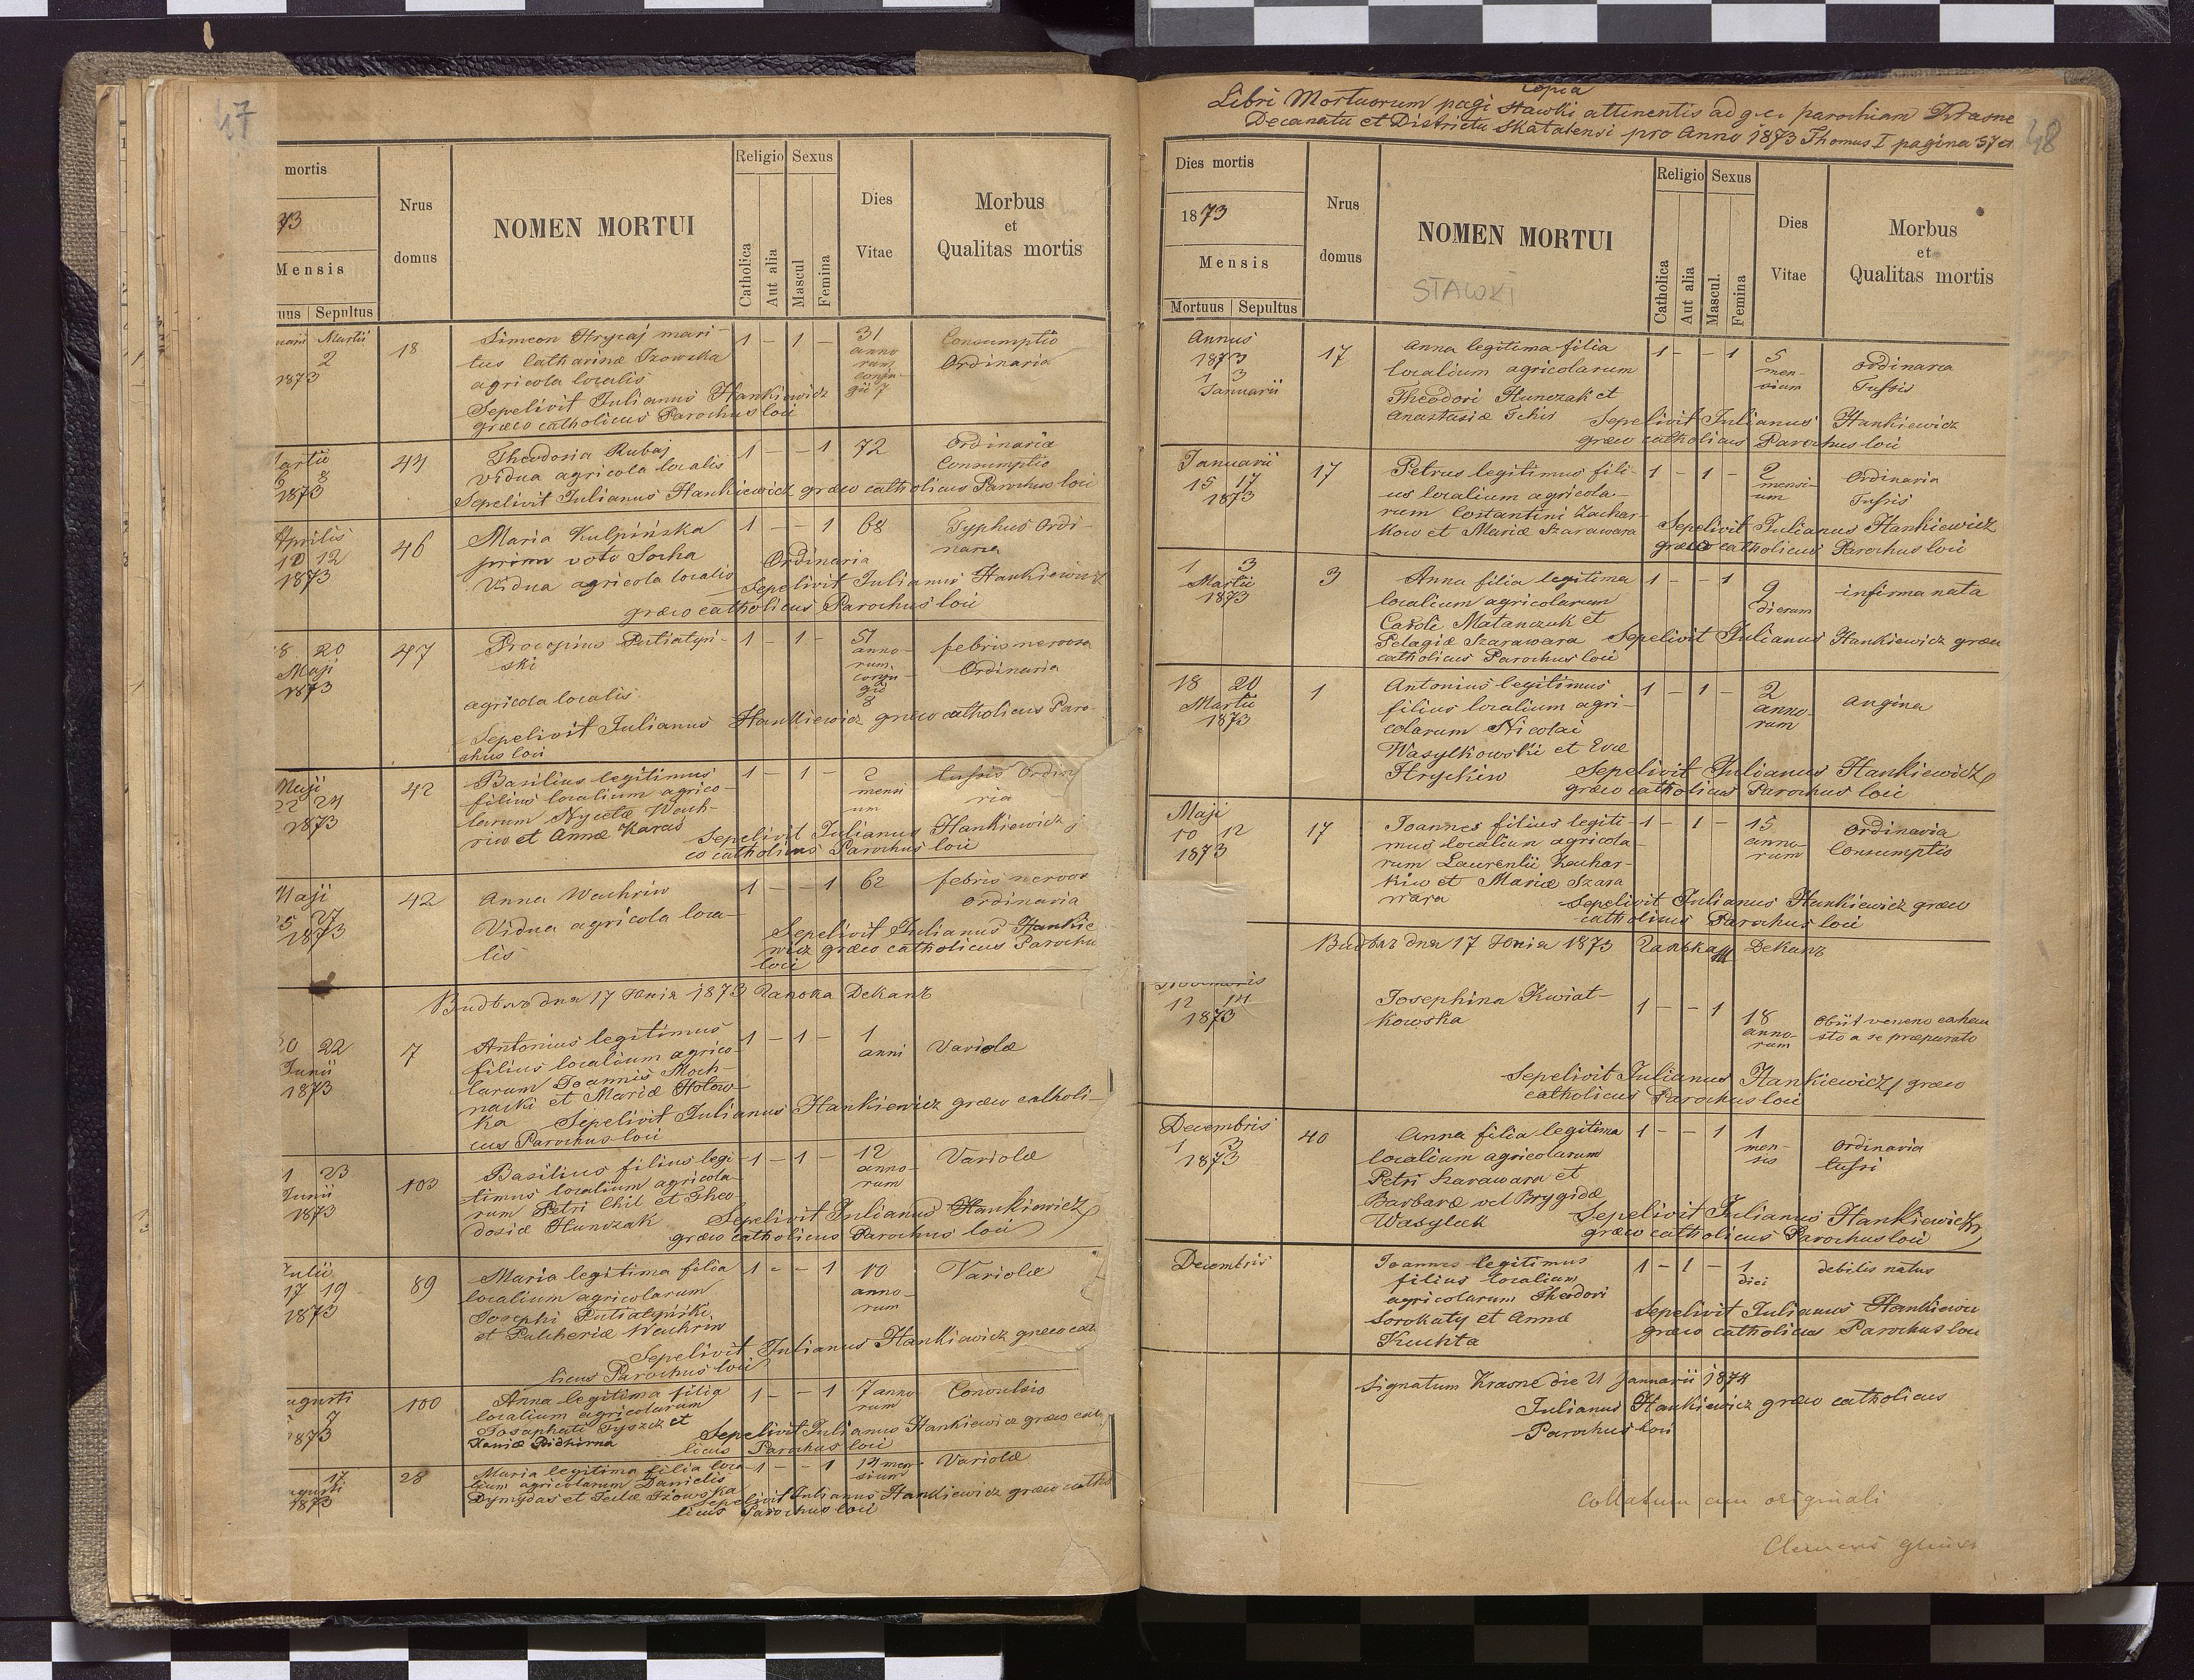 47
mortis
73
Mensis
uus Sepultus
Nrus
domus
NOMEN MORTUI
Religio
Sexus
Catholica
Aut alia
Mascul
Femina
Dies
Vitae
Morbus
et
Qualitas mortis
Martii
2
1873
18
Simeon Hrycaj mari-
tus Catharinæ Izowska
agricola localis
Sepelivit Julianus Hankiewicz
græco catholicus Parochus loci
1 - 1 -
31
anno
rum
conju-
gii 7
Consumptio
Ordinaria
8
1873
44
Theodosia Rubaj
Vidua agricola localis
Sepelivit Julianus Hankiewicz græco catholicus Parochus loci
1 - - 1
72
Ordinaria
Consumptio
Aprilis
10 12
1873
46
Maria Kulpińska
primo voto Socha
Vidua agricola localis
Ordinaria
Sepelivit Julianus Hankiewicz
græco catholicus Parochus loci
1 - - 1
68
Typhus Ordi-
naria
8 20
Maji
1873
47
Procopius Putiatyń-
ski
agricola localis
Sepelivit Julianus Hankiewicz græco catholicus Paro-
chus loci
1 - 1 -
51
anno-
rum
conju-
gio
8
febris nervosa
Ordinaria
Maji
22 24
1873
42
Basilius legitimus
filius localium agrico-
larum Nycetæ Wach-
riw et Annæ Karaś
Sepelivit Julianus Hankiewicz
co catholicus Parochus loci
1 - 1 -
2
mensi
um
tussis Ordin
ria
Maji
5 27
1873
42
Anna Wachriw
Vidua agricola loca-
lis
Sepelivit Julianus Hankie
wicz græco catholicus Parochu
loci
1 - - 1
62
febris nervos
ordinaria
dna 17 Юнія 1873 Деканъ
0 22
Junii
1873
7
Antonius legitimus
filius localium agrico-
larum Joannis Moch-
nacki et Mariæ Holow-
ka Sepelivit Julianus Hankiewicz græco catholi-
cus Parochus loci
1 - 1 -
1
anni
Variolæ
1 23
Junii
1873
103
Basilius filius legi-
timus localium agricola-
rum Petri Chil et Theo
dosiæ Hunczak Sepelivit Julianus Hankiewicz
græco catholicus Parochus loci
1 - 1 -
12
anno-
rum
Variolæ
Julii
17 19
1873
89
Maria legitima filia
localium agricolarum
Josephi Putiatyński
et Pulcheriæ Wachriw
Sepelivit Julianus Hankiewicz græco cat
licus Parochus loci
1 - - 1
10
anno-
rum
Variolæ
ugusti
7
1873
100
Anna legitima filia
localium agricolarum
Josaphati Tyszcz et
Xaniæ Pidhirna
Sepelivit Julianus Hankiewicz græco cat
licus Parochus loci
1 - - 1
7 anno
rum
Convulsio
17
ugusti
1873
28
Maria legitima filia loca
lium agricolarum Danielis
Dymydas et Teclæ Izowska
Sepelivit Julianus Hankiewicz græco catho
licus Parochus loci
1 - - 1
14 men-
sium
Variolæ
Copia
Libri Mortuorum pagi Stawki attinentis ad g.c. parochiam Krasne
Decanatu et Districtu Skalatensi pro Anno 1873 Thomus I pagina 37
48
Dies mortis
1873
Mensis
Mortuus Sepultus
Nrus
domus
NOMEN MORTUI
STAWKI
Religio
Sexus
Catholica
Aut alia
Mascul.
Femina
Dies
Vitae
Morbus
et
Qualitas mortis
Annus
1873
1 3
Januarii
17
Anna legitima filia
localium agricolarum
Theodori Hunczak et
Anastasiæ Tchir
Sepelivit Julianus Hankiewicz
græco catholicus Parochus loci
1 - - 1
5
men-
sium
Ordinaria
Tussis
Januarii
15 17
1873
17
Petrus legitimus fili-
us localium agricola-
rum Costantini Zachar-
kow et Mariæ Szarawara
Sepelivit Julianus Hankiewicz
græco catholicus Parochus loci
1 - 1 -
2
mensi-
um
Ordinaria
Tussis
1 3
Martii
1873
3
Anna filia legitima
localium agricolarum
Caroli Matanczuk et
Pelagiæ Szarawara Sepelivit Julianus Hankiewicz græco
catholicus Parochus loci
1 - - 1
9
dierum
infirma nata
18 20
Martii
1873
1
Antonius legitimus
filius localium agri-
colarum Nicolai
Wasylkowski et Evæ
Hryckiw
Sepelivit Julianus Hankiewicz
græco catholicus Parochus loci
1 - 1 -
2
anno-
rum
angina
Maji
10 12
1873
17
Joannes filius legiti-
mus localium agricola-
rum Laurentii Zachar-
kiw et Mariæ Szara
wara
Sepelivit Julianus Hankiewicz græco
catholicus Parochus loci
1 - 1 -
15
anno-
rum
Ordinaria
Consumptio
dna 17 Юнія 1873 Деканъ
12 14
1873
Josephina Kwiat-
kowska
1 - - 1
18
anno-
rum
Obiit veneno
sto a se præparato
Sepelivit Julianus Hankiewicz græco
catholicus Parochus loci
Decembris
1 3
1873
40
Anna filia legitima
localium agricolarum
Petri Szarawara et
Barbaræ vel Brygidæ
Wasylek
Sepelivit Julianus Hankiewicz
græco catholicus Parochus loci
1 - - 1
1
men-
sis
Ordinaria
tussi
Decembris
Joannes legitimus
filius localium
agricolarum Theodori
Sorokaty et Annæ
Kuchta
Sepelivit Julianus Hankiewicz
græco catholicus Parochus loci
1 - 1 -
1
diei
debilis natus
Signatum Krasne die 21 Januarii 1874
Julianus Hankiewicz græco catholicus
Parochus loci
Collatum cum originali
Clemens